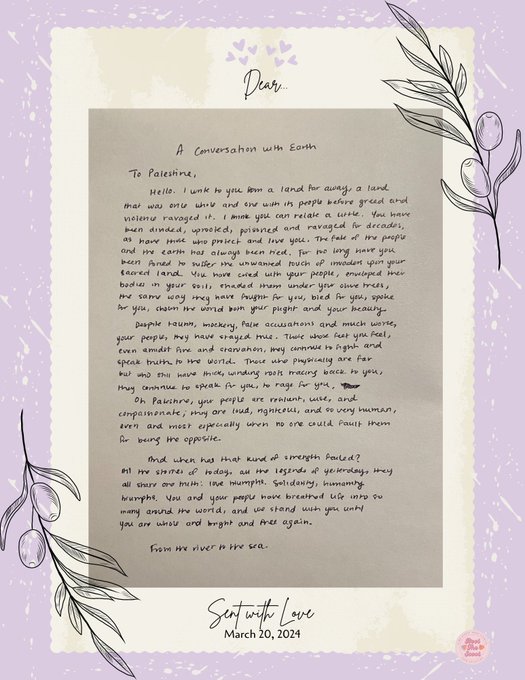 Dear...
A Conversation with Earth
To Palestine,
Hello. I write to you from a land far away, a land
that was once whole and one with its people before greed and
violence ravaged it. I think you can relate a little. You have
been divided, uprooted, poisoned and ravaged for decades,
as have those who protect and love you. The fate of the people
and the earth has always been tied. For too long have you
been forced to suffer the unwanted touch of invaders upon your
sacred land. You have cried with your people, enveloped their
bodies in your soil, shaded them under your olive trees,
the same way they have fought for you, bled for you, spoke
for you, shown the world both your plight and your beauty.
Despite taunts, mockery, false accusations and much worse,
your people, they have stayed true. Those whose feet you feel,
even amidst fire and starvation, they continue to fight and
speak truth to the world. Those who physically are far
but who still have thick, winding roots tracing back to you,
they continue to speak for you, to rage for you.
Oh Palestine, your people are resilient, wise, and
compassionate; they are loud, righteous, and so very human,
even and most especially when no one could fault them
for being the opposite.
And when has that kind of strength failed?
All the stories of today, all the legends of yesterday, they
all share one truth: love triumphs. Solidarity, humanity
triumphs. You and your people have breathed life into so
many around the world, and we stand with you until
you are whole and bright and free again.
From the river to the sea.
Sent with Love
March 20, 2024
Root
The
Scoot